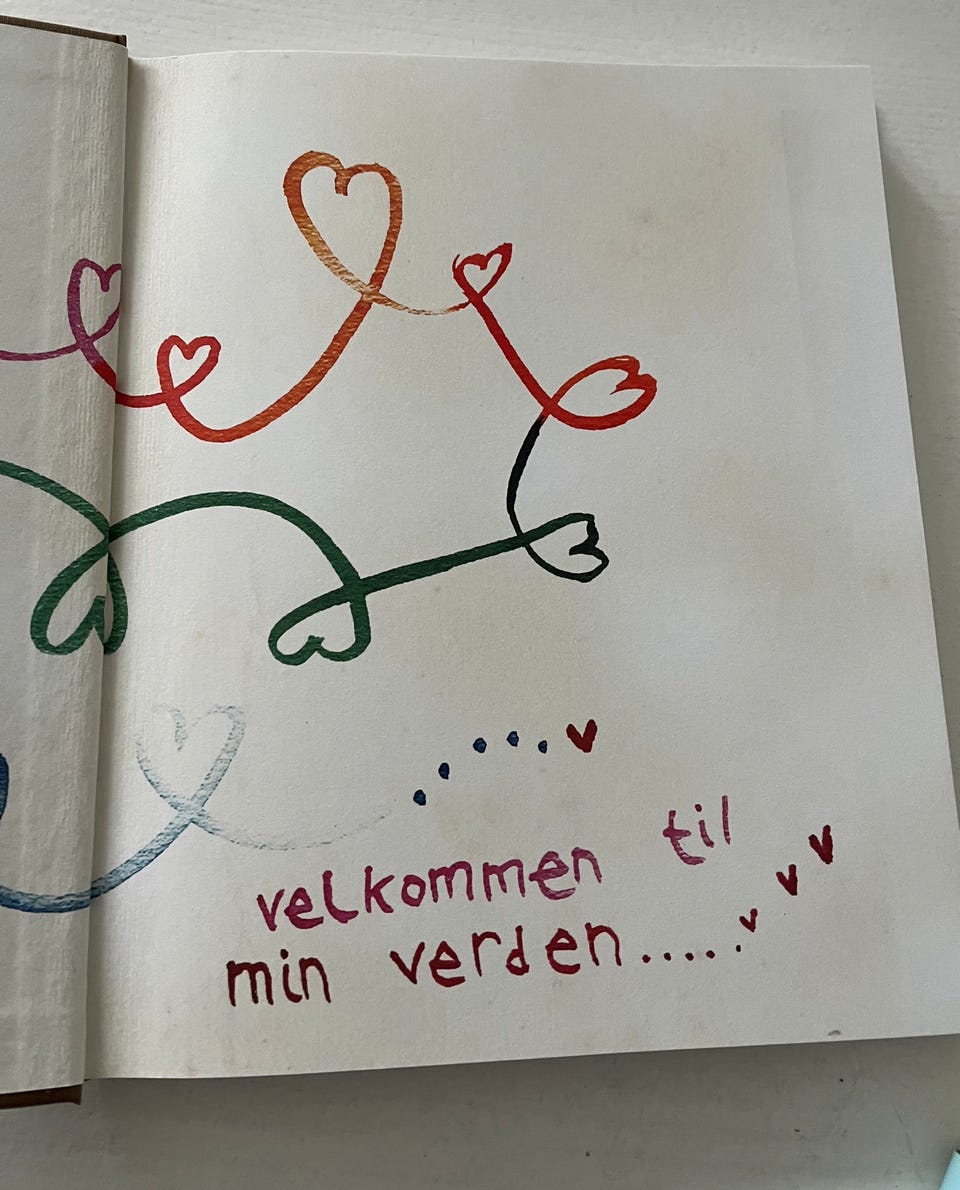 velkommen til
min verden.....